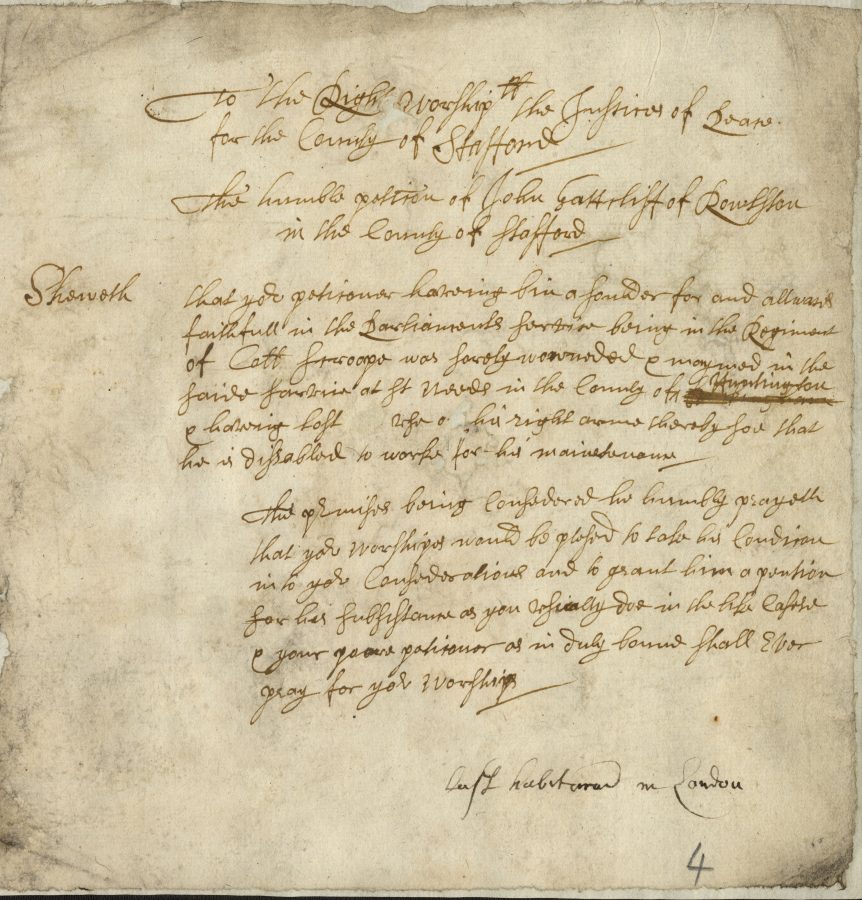 To the Right Worshipll the Justices of Peace
for the County of Stafford
The humble petition of John Hattcliff of Rowlston
in the County of Stafford
Sheweth
that yor petitoner haveing bin a souldier for and allwaies
faithfull in the Parliaments servise being in the Regiment
of Coll Scroope was sorely wownded & maymed in the
saide sarvise at St Needs in the County of Huntington
& haveing lost the his right arme thereby soe that
he is dissabled to worke for his maintenance
The premises being Consedered he humbly prayeth
that yor Worships would be plesed to take his Condition
into yor Consederations and to grant him a pention
for his subsistance as you usually doe in the like Casese
& your poore petitoner as in duty bound shall Ever
pray for yor Worships
last habit in London
4